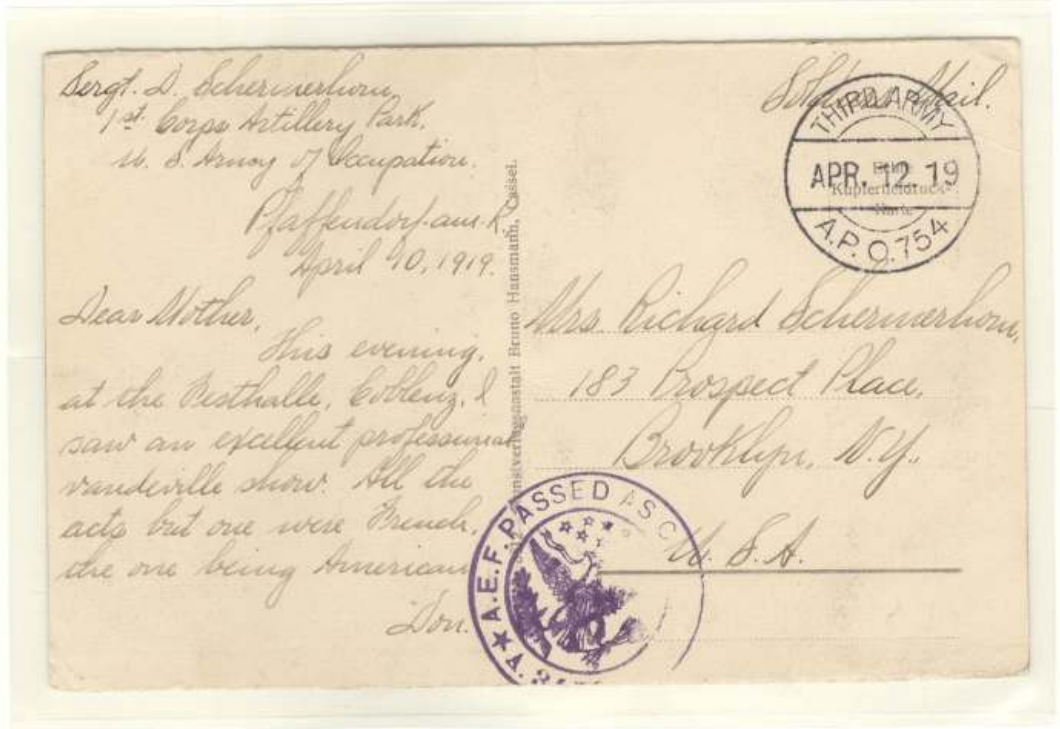 Sergt. D. Schermerhorn,
1st. Corps Artillery Park,
U. S. Army of Occupation.
Pfaffendorf-am-R.
April 10, 1919.
Dear Mother,
This evening,
at the Festhalle, Coblenz, I
saw an excellent professional
vaudeville show. All the
acts but one were French,
the one being American
Don.
Kunstverlagsanstalt Bruno Hansmann, Cassel.
Soldiers Mail.
THIRD ARMY
APR. 12 19
A.P.O. 754
Echte
Kupfertiefdruck-
Karte
Mrs. Richard Schermerhorn,
183 Prospect Place,
Brooklyn, N.Y.
U. S. A.
A.E.F. PASSED AS C